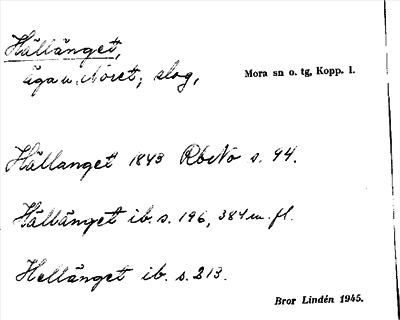 Hällänget,
äga u. Noret; slog,
Mora sn o. tg, Kopp. l.
Hällanget 1843 RbNo s. 94.
Hällänget ib. s. 196, 384 m. fl.
Hellänget ib. s. 213.
Bror Lindén 1945.